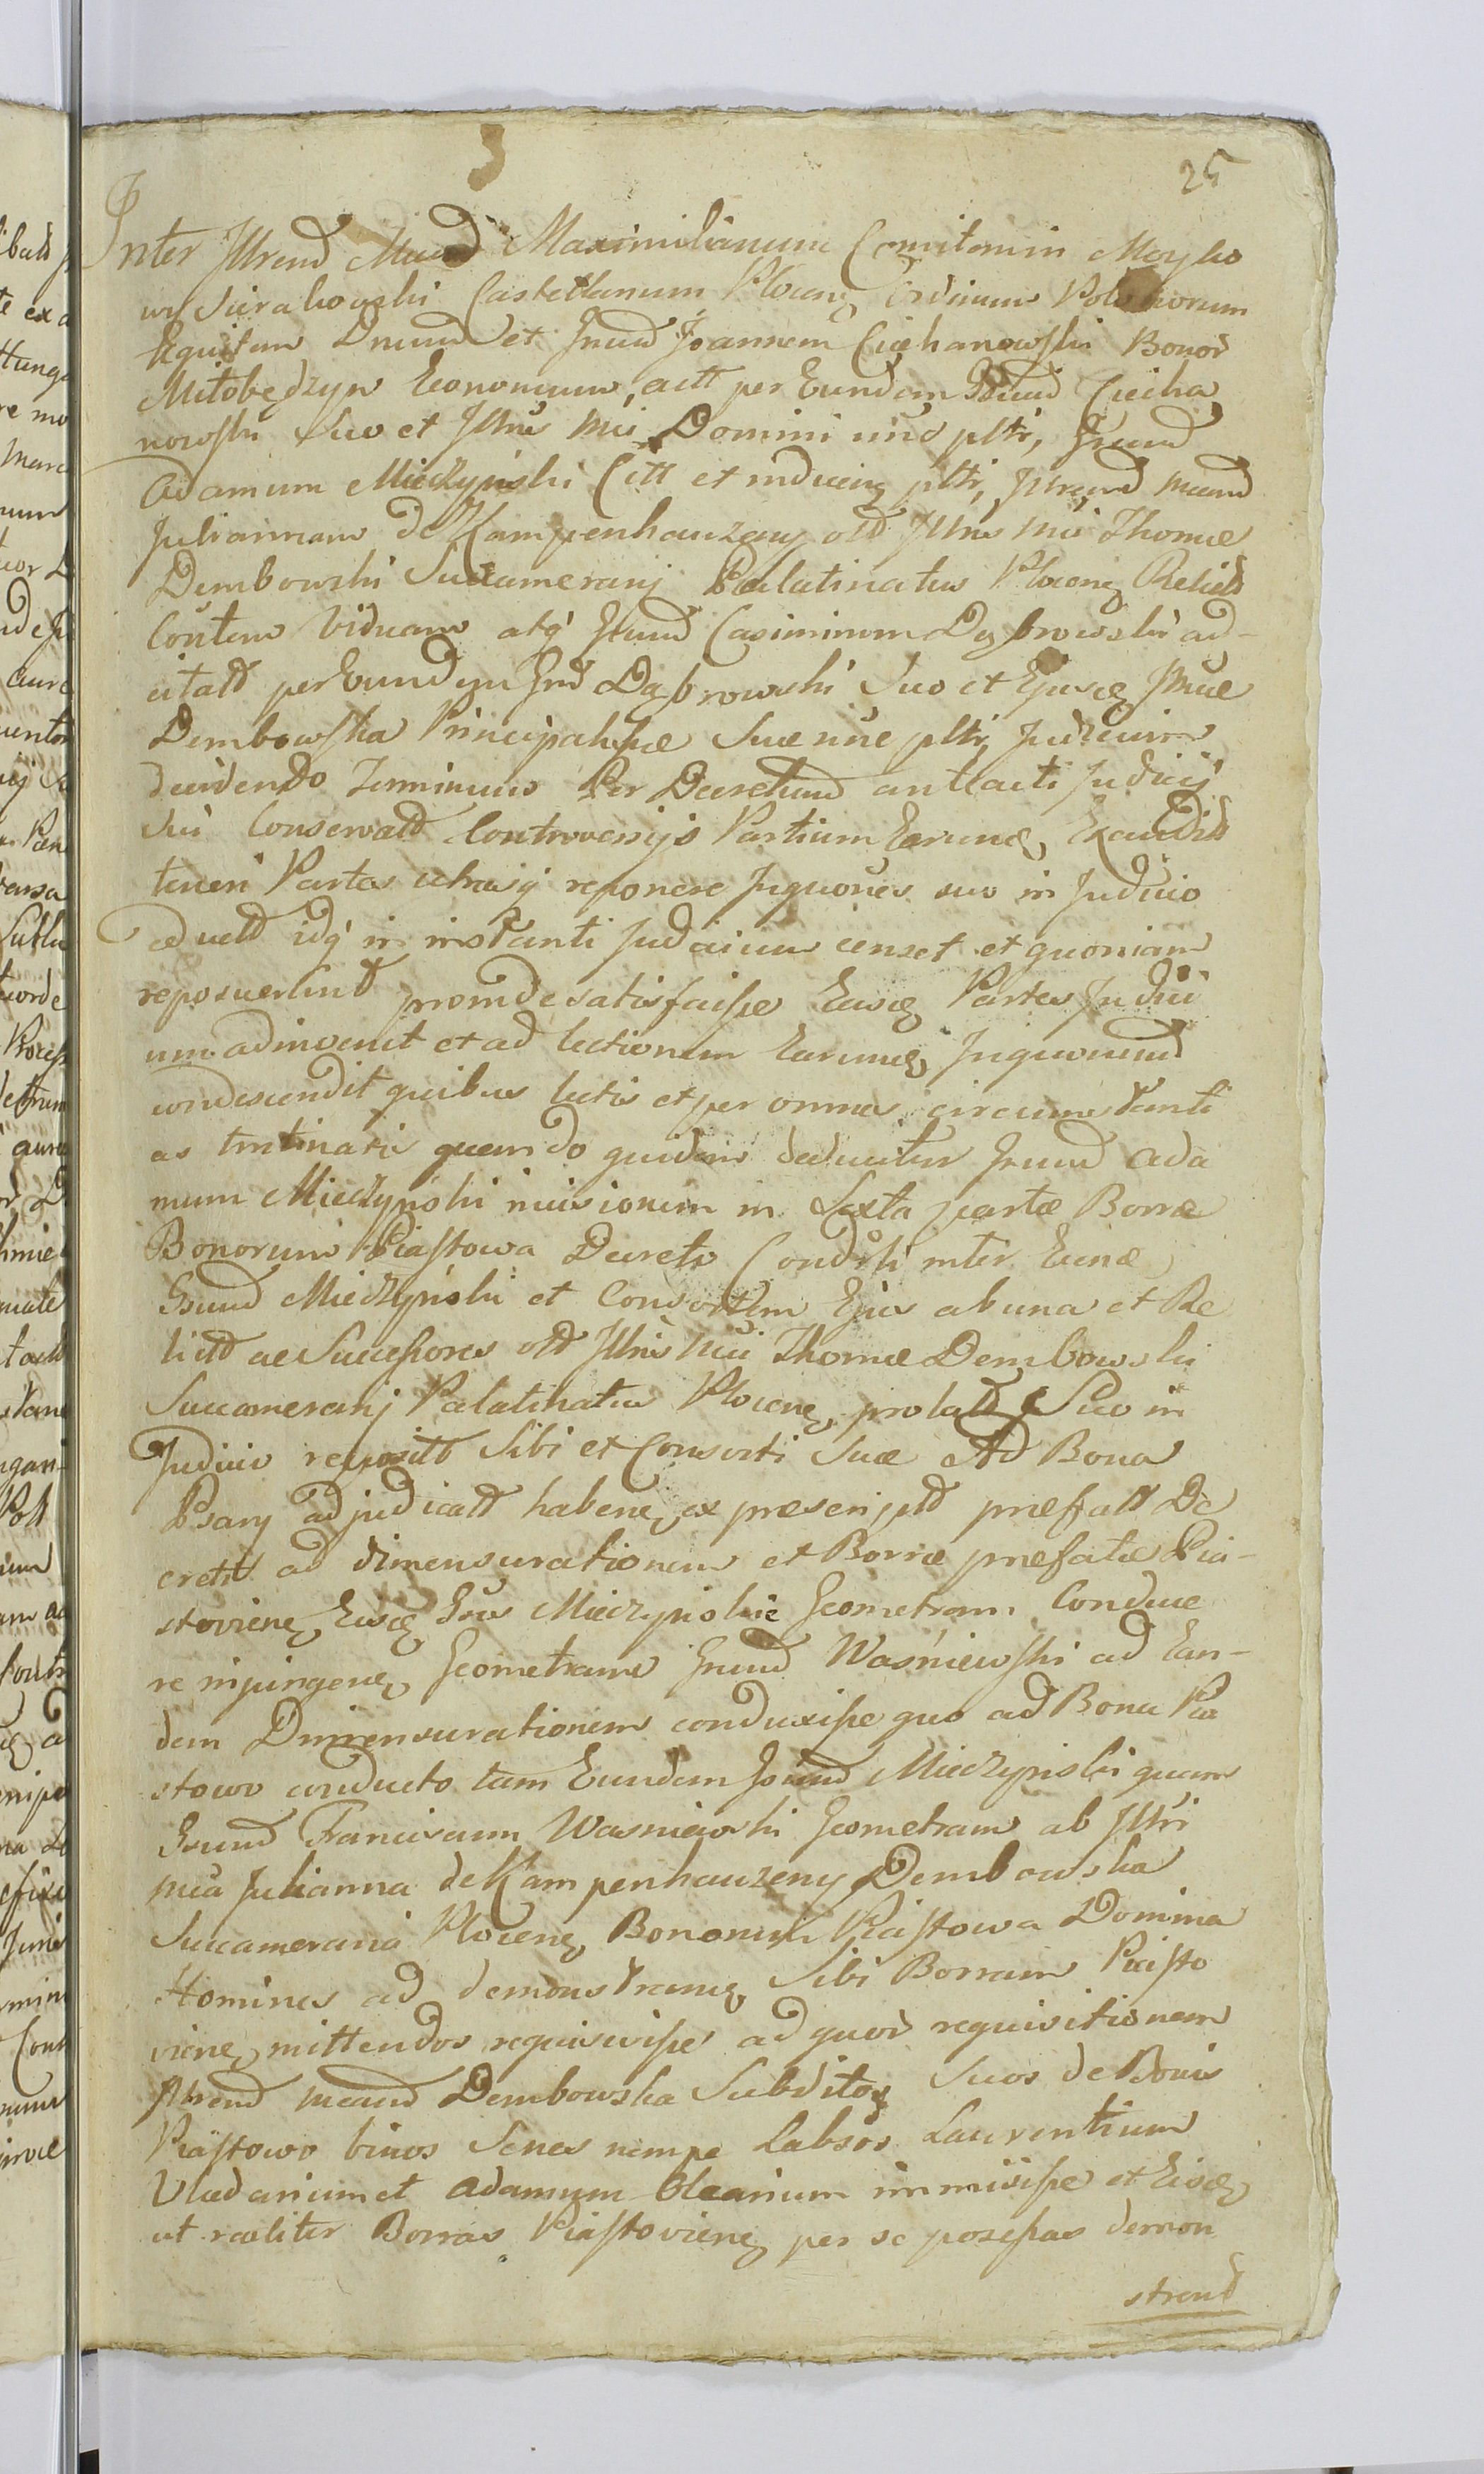 25
Inter Jllrend Mund Maximilianum Comitem in Mosko
wy Sierakowski Castellanum Plocenę Ordinum Polonorum
Equitem Dnumd et Gnud Joannem Ciechanowski Bonor
Miłobędzyn Economum, actt per Eundem Gnud Ciecha
nowski Suo et Jllris Mci Domini nnd pltr, Gnumd
Adamum Miedzyński Citt et inducenę pltr, Jllrend Mcumd
Juliannam de Kampenhauzeny old Jllris Mci Thomæ
Dembowski Succameranj Palatinatus Plocenę Relictt
Contem Viduam atq Gnud Casimirum Dąbrowski ad-
citatt per Eundem Gnd Dąbrowski Suo et Ejusę Jmæ
Dembowska Principalisæ Suæ nne pltr, Judicium
decidendo Terminum Per Decretumd antlacti Judicij
Sui Conservatt Controversijs Partium Earumę, Exauditt
teneri Partes utrasq reponere Inquones suo in Judicio
eductt idq in instanti Judicium censet et quoniam
reposuerund proinde satisfacisse Easdę Partes Judici
um adinvenit et ad lectionem Earumę Inquonumd
condescendit quibus lectis et per omnes circumstanti
as trutinatis quando quidem deducitur Gnumd Ada
mum Miedzyński in sexta partæ Borræ
Bonorum Piastowa Decreto Condsli inter Eunę
Gnumd Miedzyński et Consortem Ejus ab una et Re
lictt ac Successores old Jllris Mci Thomæ Dembowski
Succameranj Palatinatus Plocenę, prolatt Suo in
Judicio reposito Sibi et Consorti Suæ Ad Bona
Psary adjudicatt habenę, ex prescriptt præffatt De
cretti ad dimensurationem et Borræ præfatæ Pia-
stovienę Eidę Gnw Miedzyńskie Geometram Conduce
re injungenę, Geometram Gnumd Waśniewski ad Ean-
dem Dimensurationem conduxisse quo ad Bona Pia
stowo conducto tam Eundem Gnumd Miedzyński quam
Gnumd Franciscum Wasniewski Geometram ab Jllri
Mca Julianna de Kampenhauzeny Dembowska
Succamerania Plocenę, Bonorum Piastowa Domina
Homines ad demonstranę, Sibi Borram Piasto
vienę, mittendos requisivisse ad quod requisitionem
Jllrend Mcumd Dembowska Subditos Suos de Bonis
Piastowo binos Senes nempe Labsos Laurentium
Vladarium et Adamum Olearium immisisse et Eisdę,
ut realiter Borras Piastovienę per se possessas demon
strend